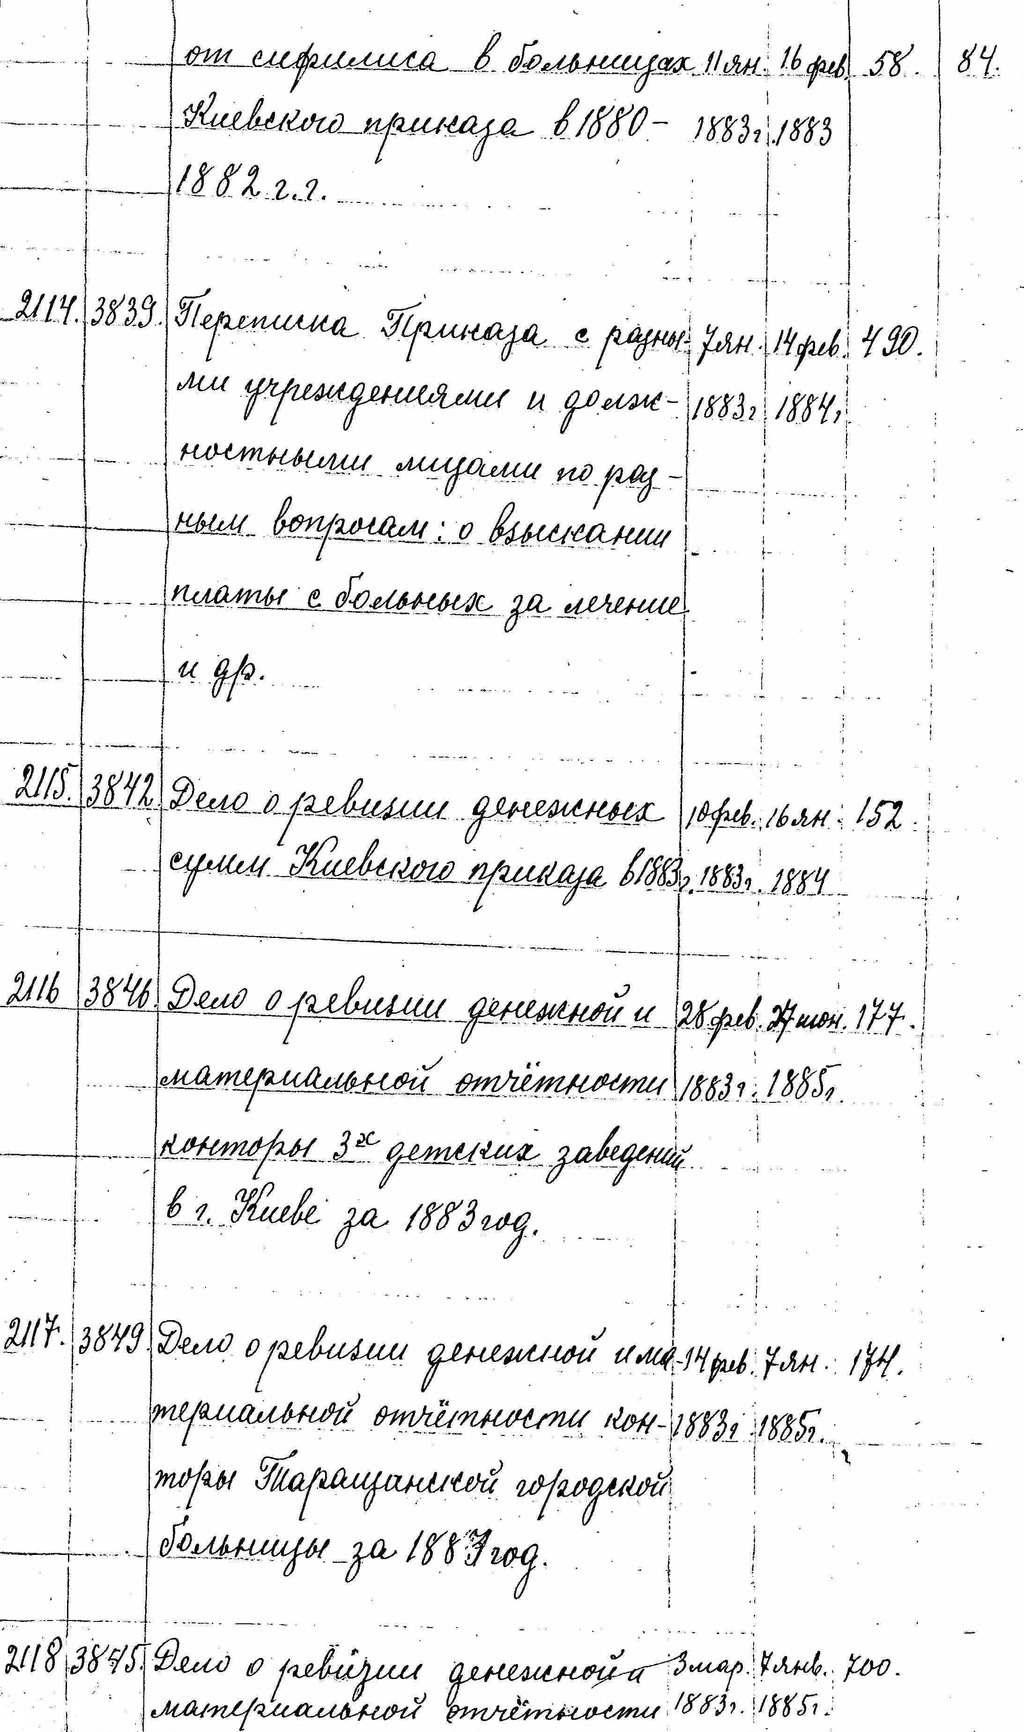 от сифилиса в больницах 11 ян. 16 фев. 58. 84.
Киевского приказа в 1880- 1883г. 1883
1882 г.г.
2114. 3839. Переписка Приказа с разны- 7 ян. 14 фев. 490.
ми учреждениями и долж- 1883г. 1884г.
ностными лицами по раз-
ным вопросам: о взыскании
платы с больных за лечение
и др.
2115. 3842 Дело о ревизии денежных 10 фев. 16 ян. 152.
сумм Киевского приказа в 1883г. 1883г. 1884
2116 3846. Дело о ревизии денежной и 28 фев. 27 июн. 177.
материальной отчётности 1883г. 1885г.
конторы 3х детских заведений
в г. Киеве за 1883 год.
2117. 3849. Дело о ревизии денежной и ма- 14 фев. 7 ян. 174.
териальной отчётности кон- 1883г. 1885г.
торы Таращанской городской
больницы за 1883 год.
2118 3875. Дело о ревизии денежной и 3 мар. 7 янв. 700.
материальной отчётности 1883г. 1885г.